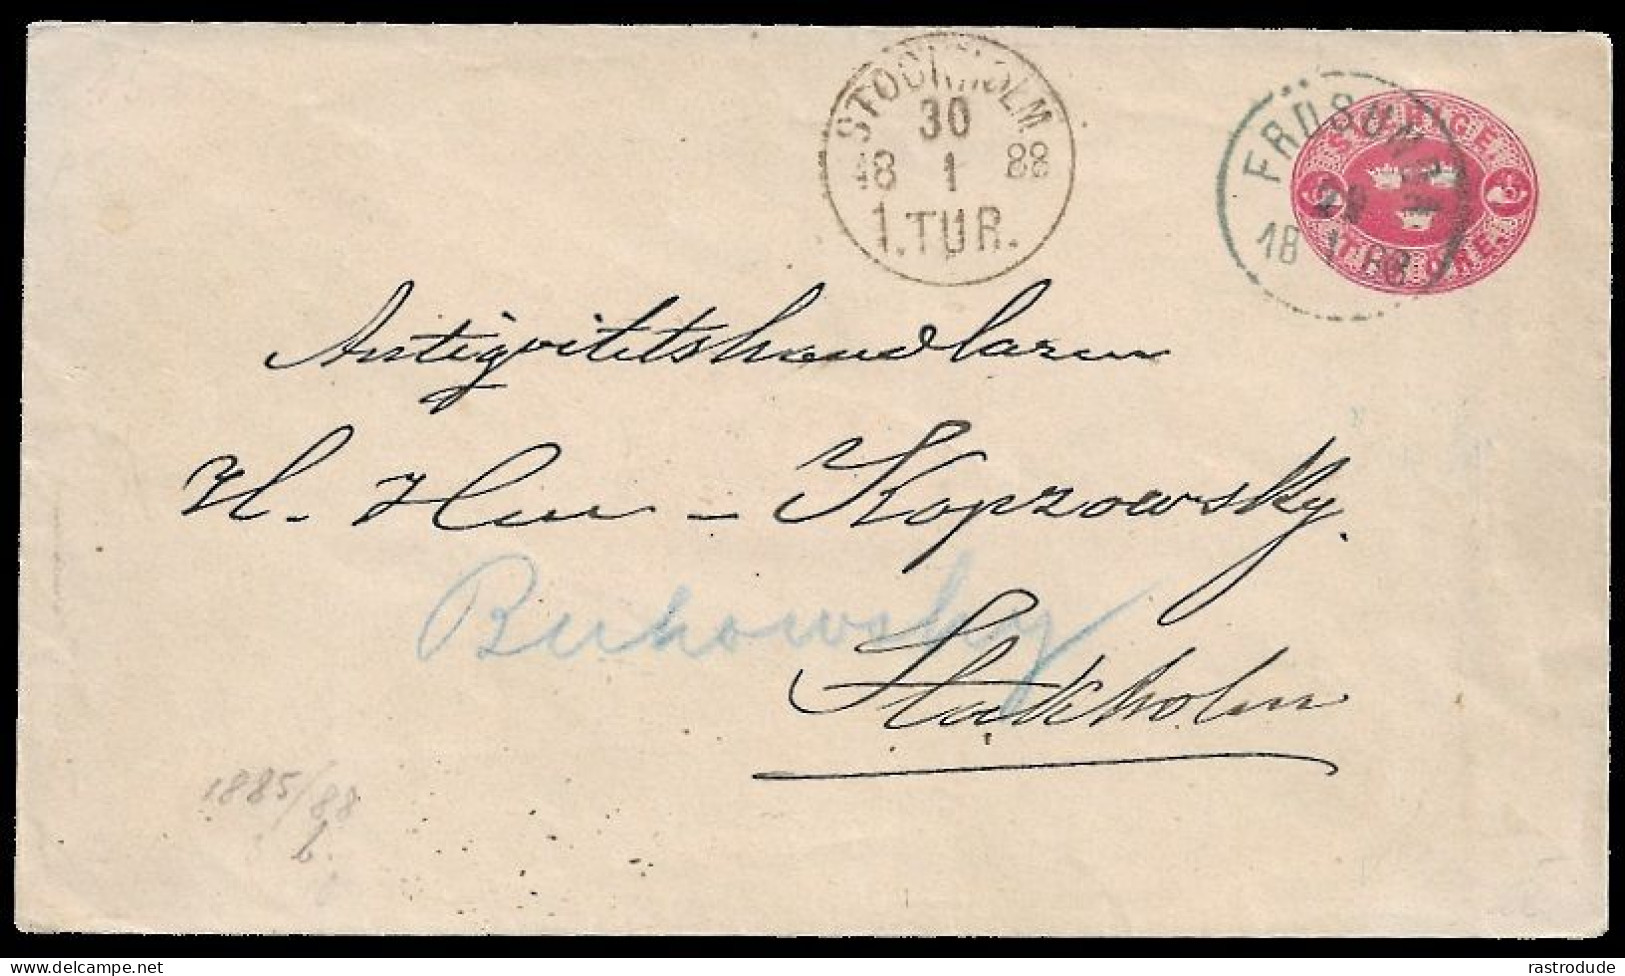 STOCKHOLM
30
18 1 88
1.TUR.
FRÖSUNDA
29
18 1 88
TIO ÖRE
Antiqvitetshandlaren
H. Herr - Kopzowsky.
Bukowsky
Stockholm
1885/88
delcampe.net
rastrodude